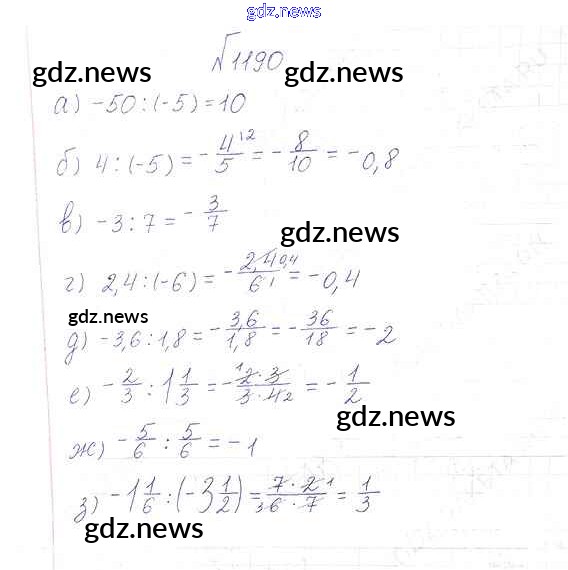 gdz.news
№1190
gdz.news gdz.news
а) -50 : (-5) = 10
б) 4 : (-5) = -4/5 ¹² = -8/10 = -0,8
в) -3 : 7 = -3/7
gdz.news
г) 2,4 : (-6) = -2,4 0,4/6 1 = -0,4
gdz.news
д) -3,6 : 1,8 = -3,6/1,8 = -36/18 = -2
е) -2/3 : 1 1/3 = -¹2·3/3·4 2 = -1/2
gdz.news
ж) -5/6 : 5/6 = -1
з) -1 1/6 : (-3 1/2) = 7·2 ¹/3 6·7 = 1/3
gdz.news